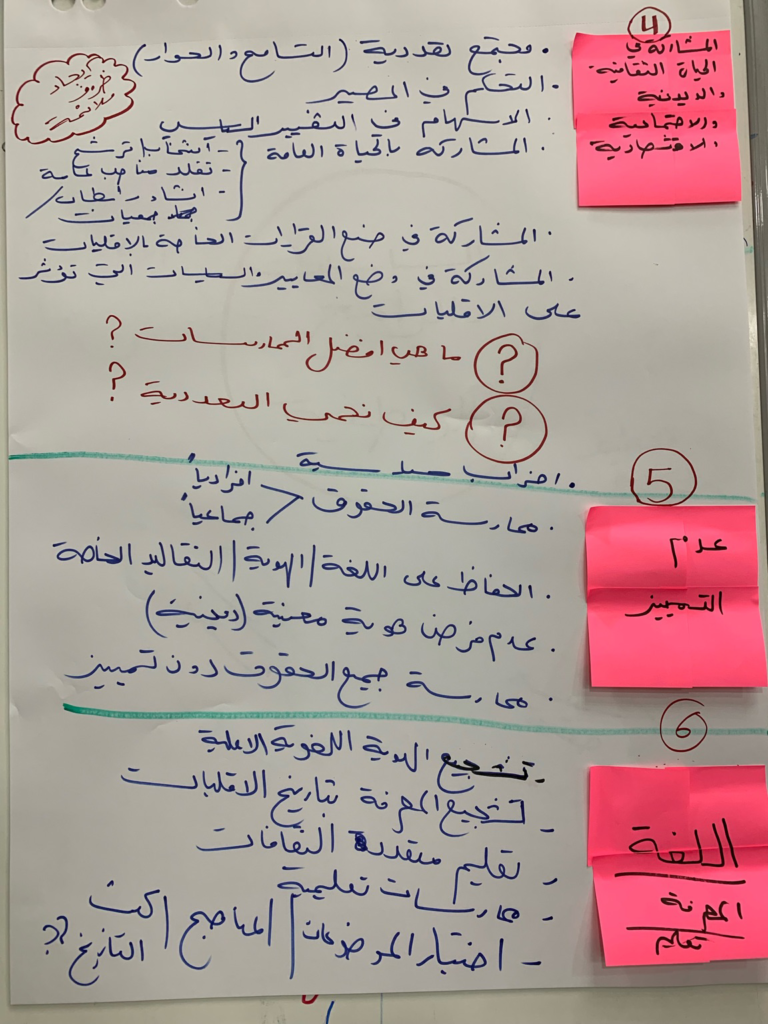 4
المشاركة في
الحياة الثقافية
والدينية
والاجتماعية
الاقتصادية
ضرورة ايجاد
• مجتمع تعددية (التسامح والحوار)
• التحكم في المصير
• الاسهام في التغيير السياسي
• المشاركة بالحياة العامة
- انتخاب / ترشح
- تقلد مناصب عامة
- انشاء رابطات /
جمعيات
• المشاركة في صنع القرارات الخاصة بالاقليات
• المشاركة في وضع المعايير والسياسات التي تؤثر
على الاقليات
? ما هي افضل الممارسات ?
? كيف نحمي التعددية ?
• احزاب سياسية
5
عدم
التمييز
• ممارسة الحقوق < افرادياً
جماعياً
• الحفاظ على اللغة / الهوية / التقاليد الخاصة
• عدم فرض هوية معينة (دينية)
• ممارسة جميع الحقوق دون تمييز
6
اللغة
المعرفة
تعليم
- تشجيع الهوية اللغوية الاصلية
- تشجيع المعرفة بتاريخ الاقليات
- تعليم متعدد الثقافات
- ممارسات تعليمية
- اختبار الموضوعات / المناهج / كتب
التاريخ ??